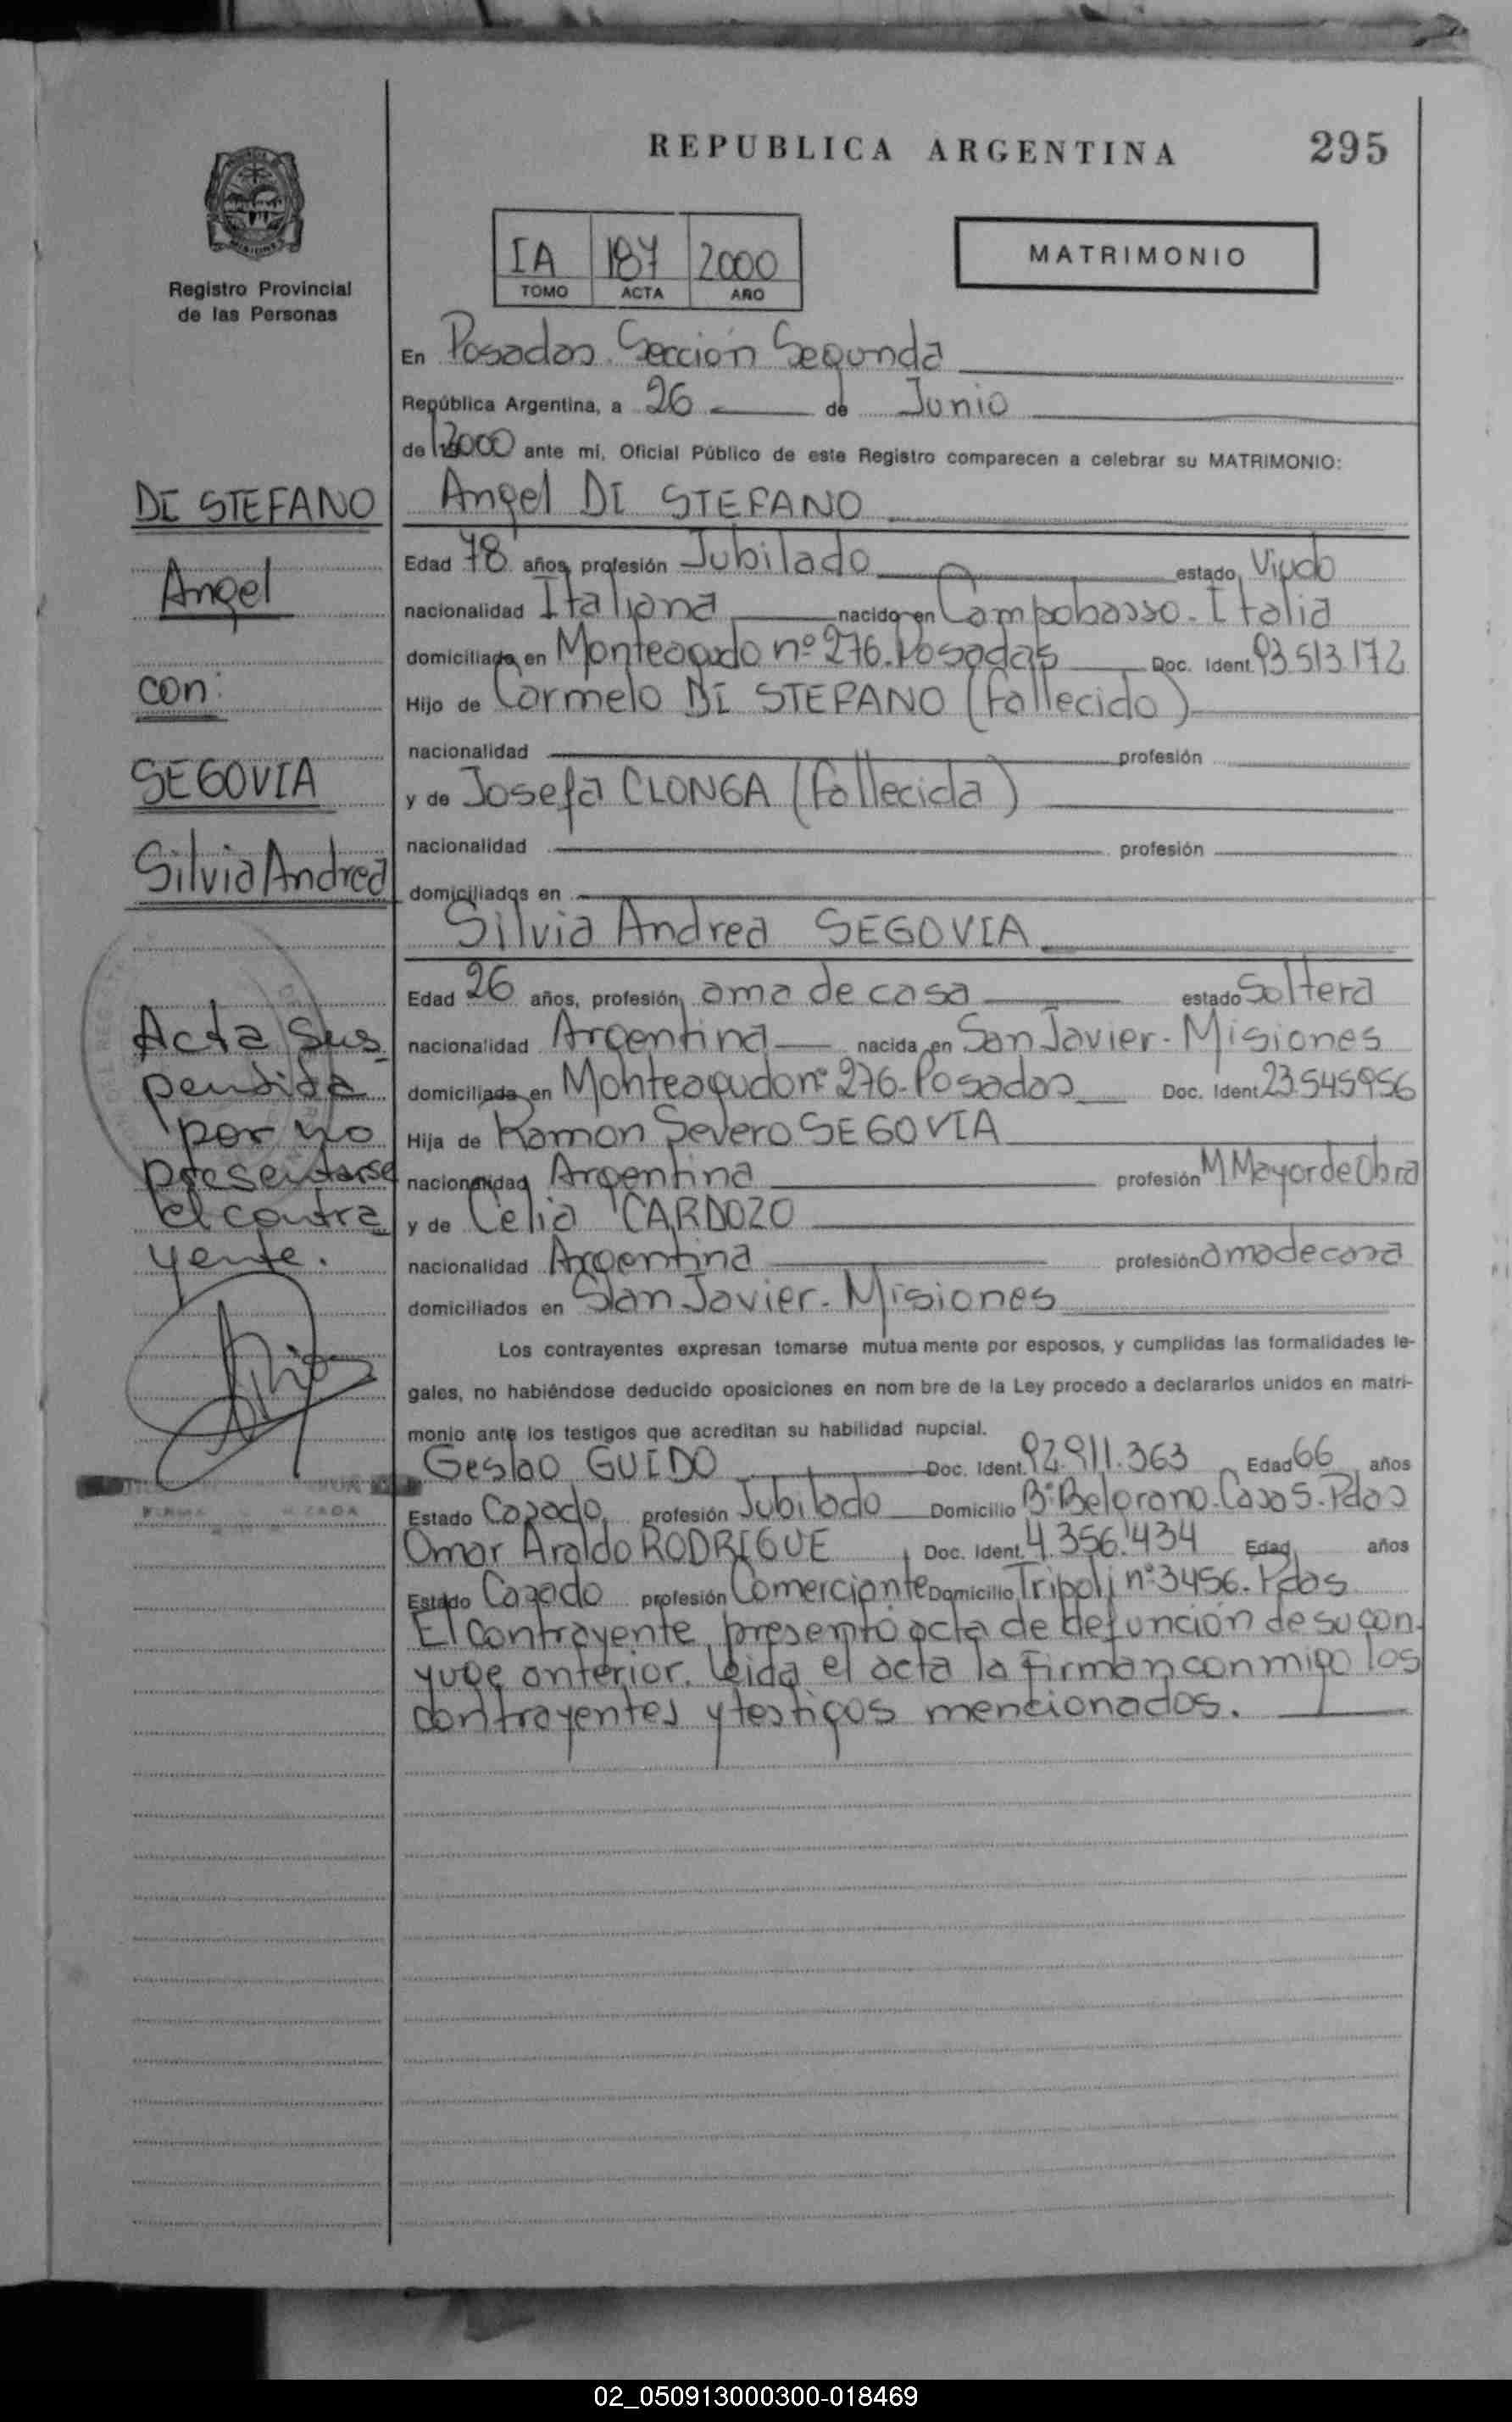 REPUBLICA ARGENTINA
295
Registro Provincial
de las Personas
IA 187 2000
TOMO ACTA AÑO
MATRIMONIO
En Posadas. Sección Segunda
República Argentina, a 26 de Junio
de 2000 ante mi, Oficial Público de este Registro comparecen a celebrar su MATRIMONIO:
DI STEFANO
Angel
con:
SEGOVIA
Silvia Andrea
Acta Sus
pendida
por no
presentarse
el contra
yente.
Angel DI STEFANO
Edad 78 años, profesión Jubilado estado Viudo
nacionalidad Italiana nacido en Campobasso - Italia
domiciliado en Monteagudo nº 276. Posadas Doc. Ident. 93.513.172
Hijo de Carmelo DI STEFANO (Fallecido)
nacionalidad profesión
y de Josefa CLONGA (Fallecida)
nacionalidad profesión
domiciliados en
Silvia Andrea SEGOVIA
Edad 26 años, profesión ama de casa estado Soltera
nacionalidad Argentina nacida en San Javier - Misiones
domiciliada en Monteagudo nº 276 - Posadas Doc. Ident 23.545956
Hija de Ramon Severo SEGOVIA
nacionalidad Argentina profesión M Mayor de Obra
y de Celia CARDOZO
nacionalidad Argentina profesión ama de casa
domiciliados en San Javier - Misiones
Los contrayentes expresan tomarse mutua mente por esposos, y cumplidas las formalidades le-
gales, no habiéndose deducido oposiciones en nom bre de la Ley procedo a declararlos unidos en matri-
monio ante los testigos que acreditan su habilidad nupcial.
Geslao GUIDO Doc. Ident. 92.911.363 Edad 66 años
Estado Casado profesión Jubilado Domicilio Bº Belgrano - Casa 5 - Pdas
Omar Araldo RODRIGUE Doc. Ident. 4.356.434 Edad años
Estado Casado profesión Comerciante Domicilio Tripoli nº 3456. Pdas
El contrayente presentó acta de defunción de su con-
yuge anterior. Leida el acta la firman conmigo los
contrayentes y testigos mencionados.
02_050913000300-018469